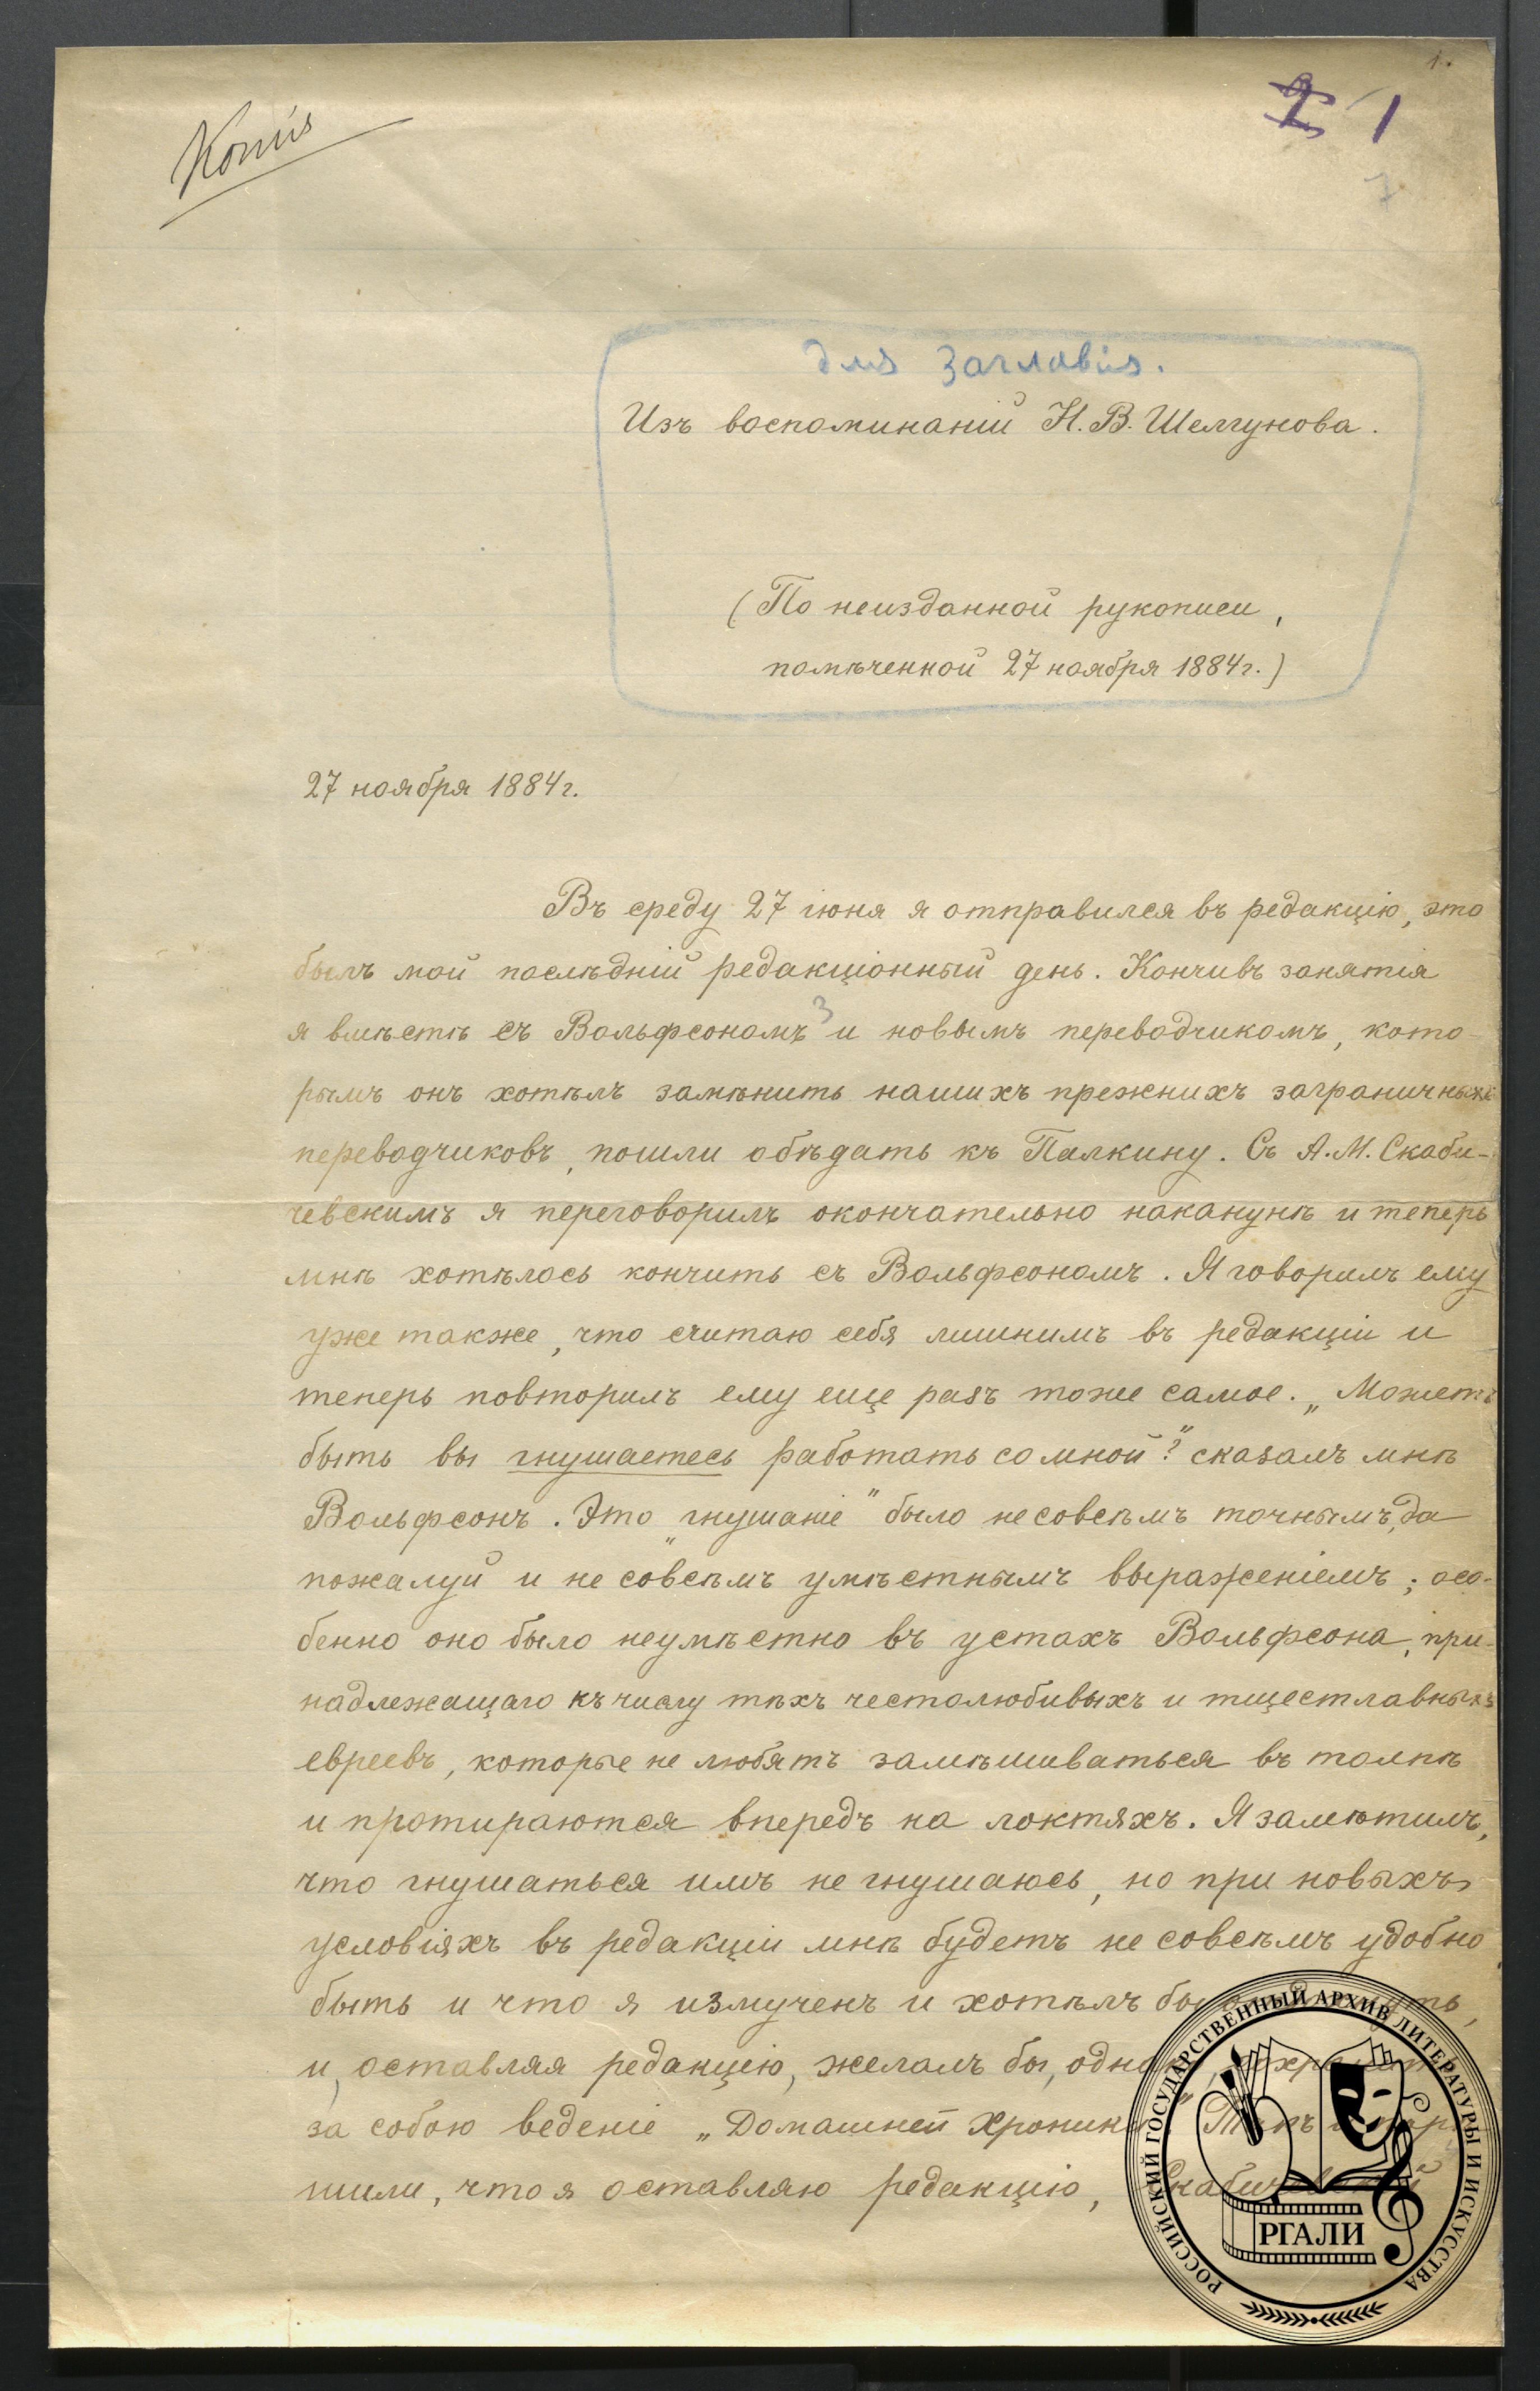 1.
Копія
1
7
для заглавія.
Изъ воспоминаній Н. В. Шелгунова.
(По неизданной рукописи,
помѣченной 27 ноября 1884 г.)
27 ноября 1884 г.
Въ среду 27 іюня я отправился въ редакцію, это
былъ мой послѣдній редакціонный день. Кончивъ занятія
я вмѣстѣ съ Вольфсономъ и новымъ переводчикомъ, кото-
рымъ онъ хотѣлъ замѣнить нашихъ прежнихъ заграничныхъ
переводчиковъ, пошли обѣдать къ Палкину. Съ А. М. Скаби-
чевскимъ я переговорилъ окончательно наканунѣ и теперь
мнѣ хотѣлось кончить съ Вольфсономъ. Я говорилъ ему
уже также, что считаю себя лишнимъ въ редакціи и
теперь повторилъ ему еще разъ тоже самое. „Можетъ
быть вы гнушаетесь работать со мной?“ сказалъ мнѣ
Вольфсонъ. Это „гнушаніе“ было не совсѣмъ точнымъ, да
пожалуй и не совсѣмъ умѣстнымъ выраженіемъ; осо-
бенно оно было неумѣстно въ устахъ Вольфсона, при-
надлежащаго къ числу тѣхъ честолюбивыхъ и тщеславныхъ
евреевъ, которые не любятъ замѣшиваться въ толпѣ
и протираются впередъ на локтяхъ. Я замѣтилъ,
что гнушаться имъ не гнушаюсь, но при новыхъ
условіяхъ въ редакціи мнѣ будетъ не совсѣмъ удобно
быть и что я измученъ и хотѣлъ бы
и, оставляя редакцію, желалъ бы, однако,
за собою веденіе „Домашней Хроники“.
шили, что я оставляю редакцію, Скабичевскій
РОССИЙСКИЙ ГОСУДАРСТВЕННЫЙ АРХИВ ЛИТЕРАТУРЫ И ИСКУССТВА
РГАЛИ